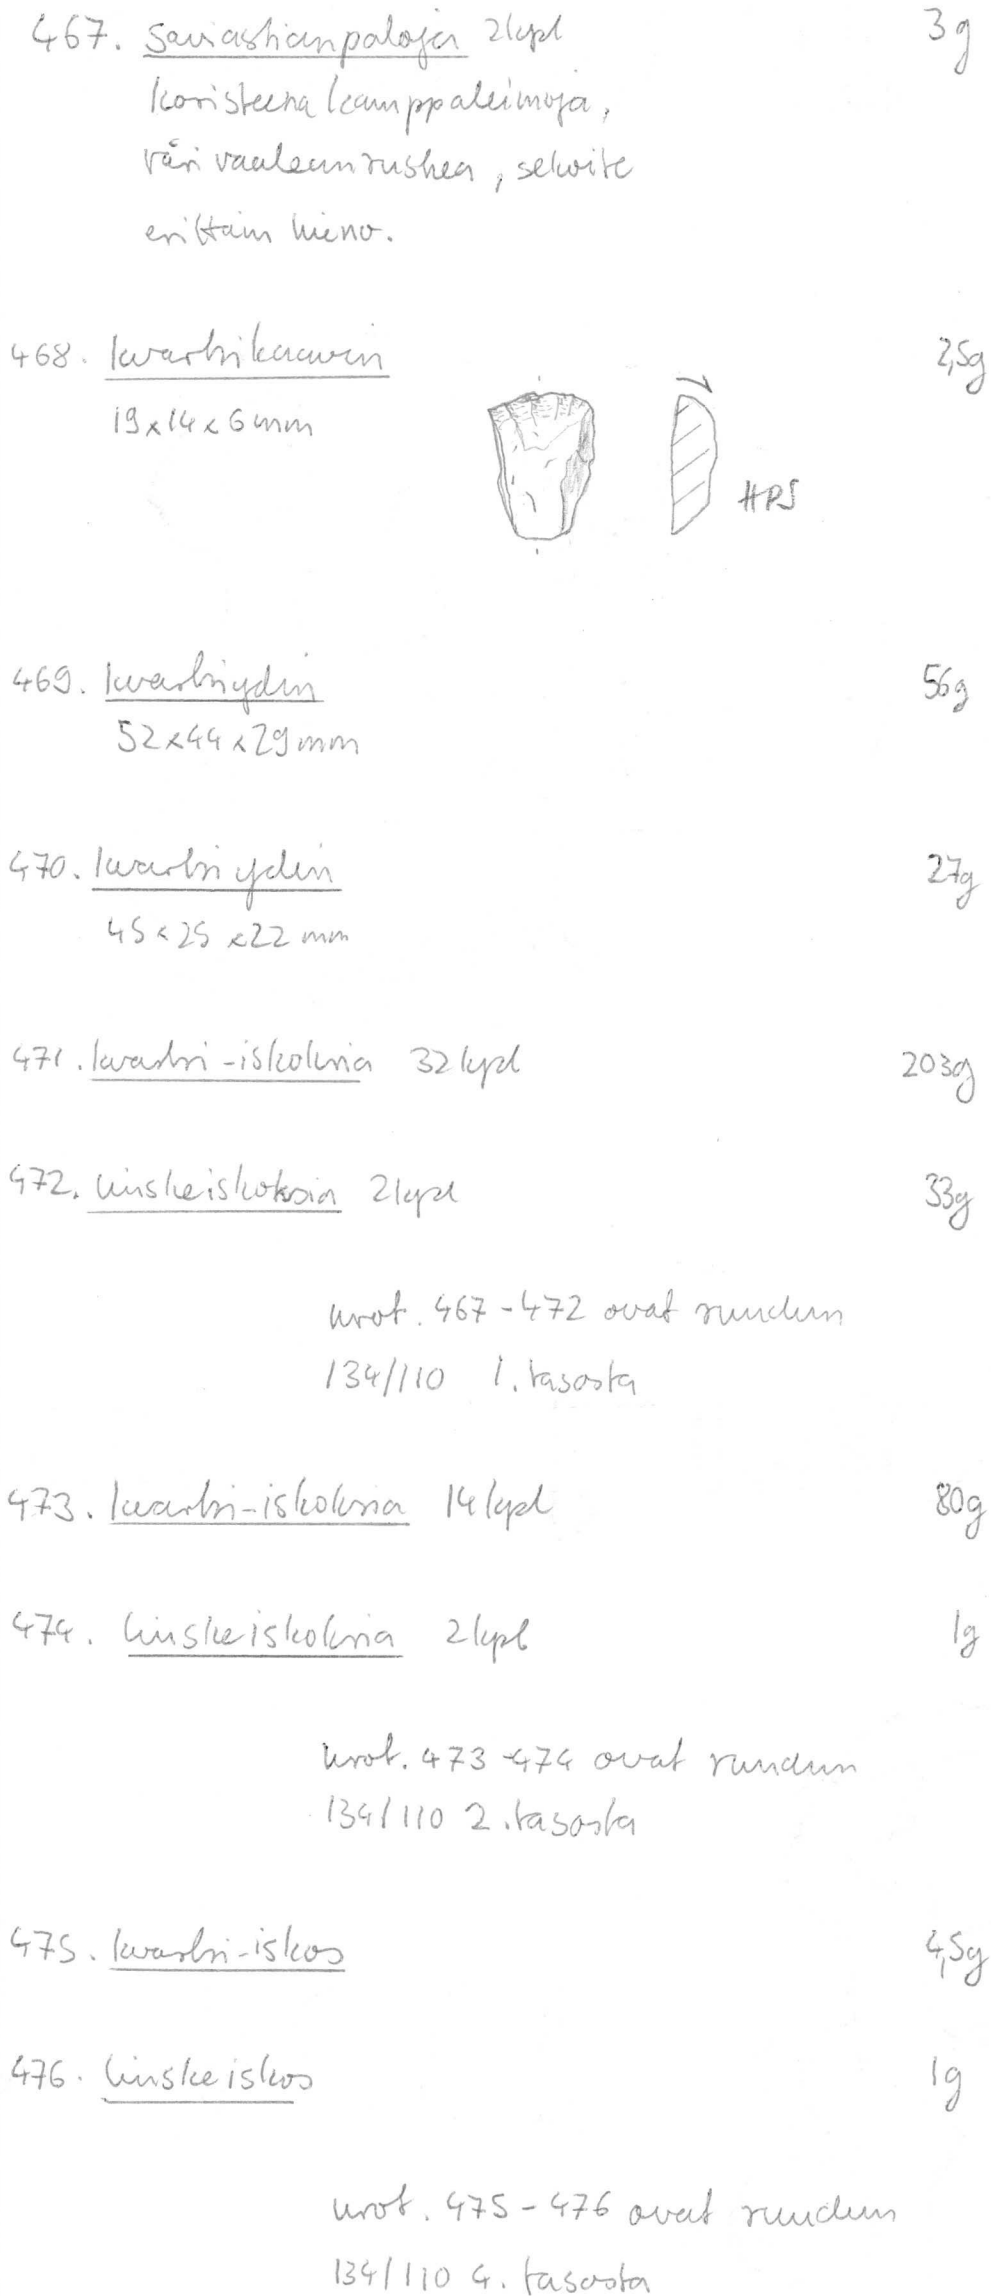 467. saviastianpaloja 2kpl 3g
koristeena kamppaleimoja,
väri vaaleanruskea, sekoite
erittäin hieno.
468. kvartsikaavin 2,5g
19x14x6mm
HPS
469. kvartsiydin 56g
52x44x29mm
470. kvartsiydin 27g
45x25x22mm
471. kvartsi-iskoksia 32kpl 203g
472. liuskeiskoksia 2kpl 33g
nrot. 467-472 ovat ruudun
134/110 1. tasosta
473. kvartsi-iskoksia 14kpl 80g
474. liuskeiskoksia 2kpl 1g
nrot. 473-474 ovat ruudun
134/110 2. tasosta
475. kvartsi-iskos 4,5g
476. liuskeiskos 1g
nrot. 475-476 ovat ruudun
134/110 4. tasosta